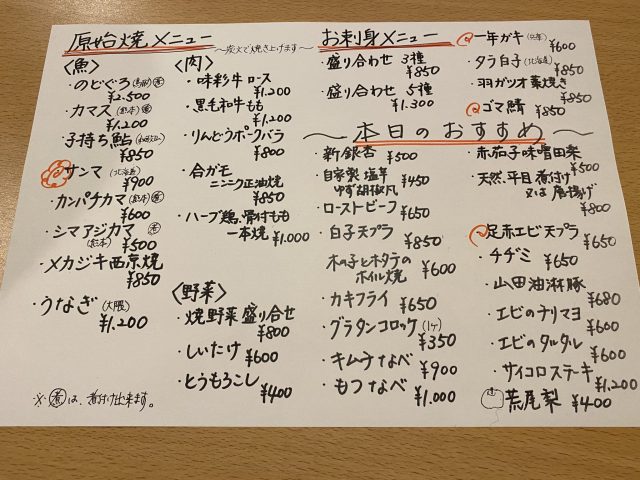 原始焼メニュー
〜炭火で焼き上げます〜
〈魚〉
・のどぐろ
¥2,500
・カマス(熊本)煮
¥1,200
・子持ち鮎
¥850
・サンマ(北海道)
¥900
・カンパチカマ(熊本)煮
¥600
・シマアジカマ煮
(熊本)¥500
・メカジキ西京焼
¥850
・うなぎ(大隅)
¥1,200
※煮は、煮付け出来ます。
〈肉〉
・味彩牛ロース
¥1,200
・黒毛和牛もも
¥1,200
・りんどうポークバラ
¥800
・合ガモ
ニンニク正油焼
¥850
・ハーブ鶏、骨付もも
一本焼 ¥1,000
〈野菜〉
・焼野菜盛り合せ
¥800
・しいたけ ¥600
・とうもろこし
¥400
お刺身メニュー
・盛り合わせ 3種
¥850
・盛り合わせ 5種
¥1,300
・一年ガキ
¥600
・タラ白子(北海道)
¥850
・羽ガツオ藁焼き
¥850
・ゴマ鯖 ¥850
〜本日のおすすめ〜
・新銀杏 ¥500
・自家製 塩辛
ゆず胡椒風 ¥450
・ローストビーフ ¥650
・白子天プラ
¥850
・木の子とホタテの
ホイル焼 ¥600
・カキフライ
¥650
・グラタンコロッケ(1ケ)
¥350
・キムチなべ ¥900
・もつなべ ¥1,000
・赤茄子味噌田楽
¥500
・天然、平目煮付け
又は唐揚げ
¥800
・足赤エビ天プラ
¥650
・チヂミ ¥650
・山田油淋豚
¥680
・エビのチリマヨ
¥600
・エビのタルタル
¥600
・サイコロステーキ
¥1,200
荒尾梨 ¥400